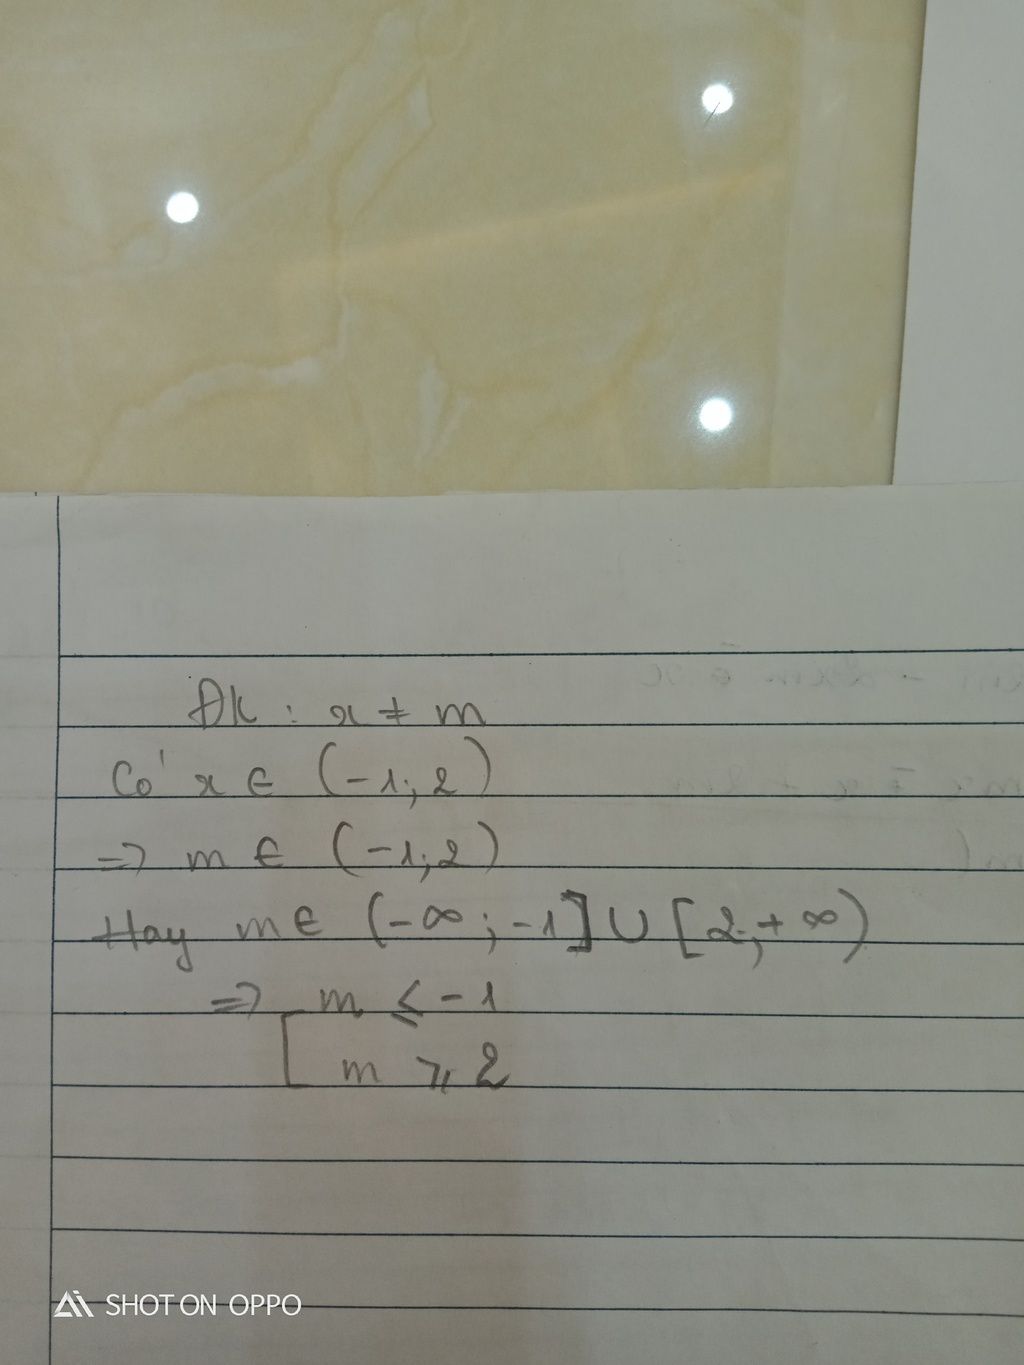 ĐK : x ≠ m
Có x ∈ (-1; 2)
=> m ∈ (-1; 2)
Hay m ∈ (-∞; -1] ∪ [2; +∞)
=> [ m ≤ -1
m ≥ 2
SHOT ON OPPO